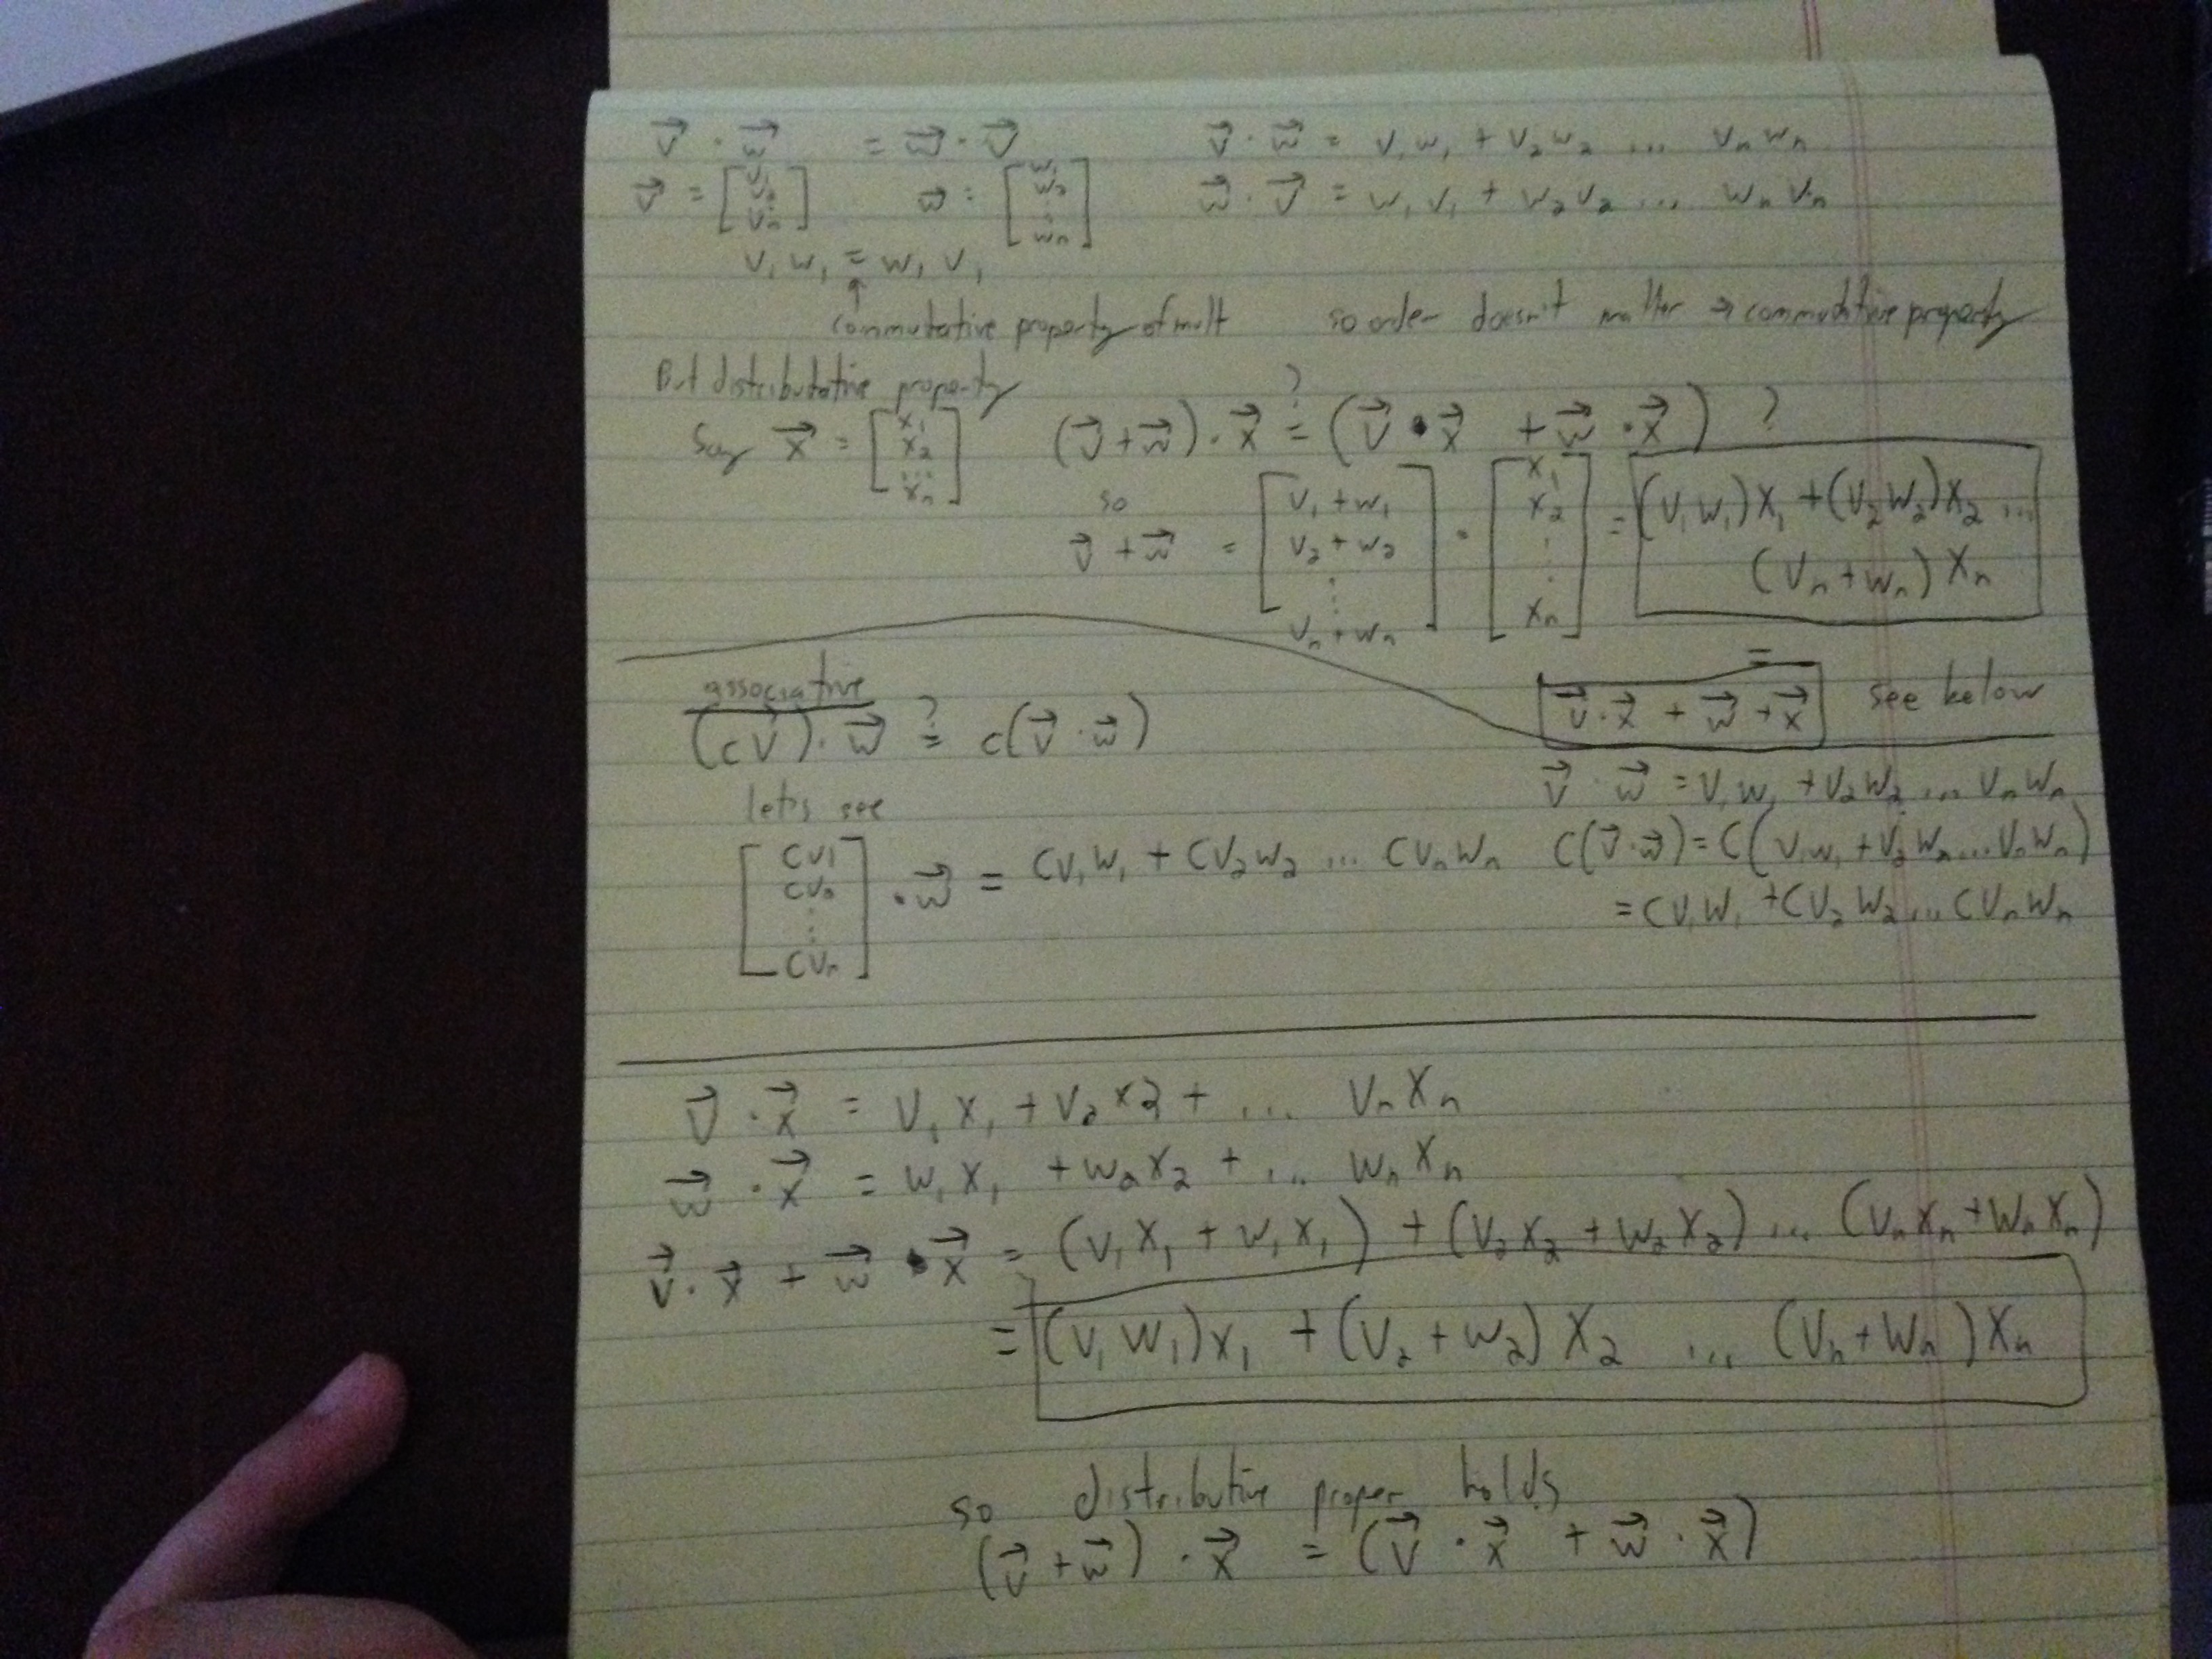 v⃗ · w⃗ = w⃗ · v⃗     v⃗ · w⃗ = v₁w₁ + v₂w₂ ... vₙwₙ
v⃗ = [v₁ v₂ vₙ]   w⃗ : [w₁ w₂ ⋮ wₙ]     w⃗ · v⃗ = w₁v₁ + w₂v₂ ... wₙvₙ
v₁w₁ = w₁v₁
↑
commutative property of mult     so order doesn't matter → commutative property
distributative property
say x⃗ = [x₁ x₂ ⋮ xₙ]     (v⃗ + w⃗) · x⃗ ?= (v⃗ · x⃗ + w⃗ · x⃗) ?
so
v⃗ + w⃗ = [v₁ + w₁  v₂ + w₂  ⋮  vₙ + wₙ] · [x₁ x₂ ⋮ xₙ] = (v₁w₁)x₁ + (v₂w₂)x₂ ...
(vₙ + wₙ)xₙ
=
v⃗ · x⃗ + w⃗ + x⃗   see below
associative
(cv) · w⃗ ?= c(v⃗ · w⃗)
let's see     v⃗ · w⃗ = v₁w₁ + v₂w₂ ... vₙwₙ
[cv₁ cv₂ ⋮ cvₙ] · w⃗ = cv₁w₁ + cv₂w₂ ... cvₙwₙ     c(v⃗ · w⃗) = c(v₁w₁ + v₂w₂ ... vₙwₙ)
= cv₁w₁ + cv₂w₂ ... cvₙwₙ
v⃗ · x⃗ = v₁x₁ + v₂x₂ + ... vₙxₙ
w⃗ · x⃗ = w₁x₁ + w₂x₂ + ... wₙxₙ
v⃗ · x⃗ + w⃗ · x⃗ = (v₁x₁ + w₁x₁) + (v₂x₂ + w₂x₂) ... (vₙxₙ + wₙxₙ)
= (v₁w₁)x₁ + (v₂ + w₂)x₂ ... (vₙ + wₙ)xₙ
so distributive proper holds
(v⃗ + w⃗) · x⃗ = (v⃗ · x⃗ + w⃗ · x⃗)